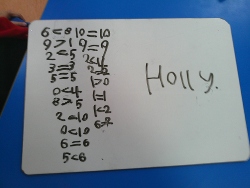 6 < 8 10 = 10
9 > 1 9 = 9
2 < 5 2 < 4
3 = 3
5 = 5 1 > 0
0 < 4
8 > 5 1 = 1
1 < 2
2 = 10
0 < 10
6 = 6
5 < 6
Holly.